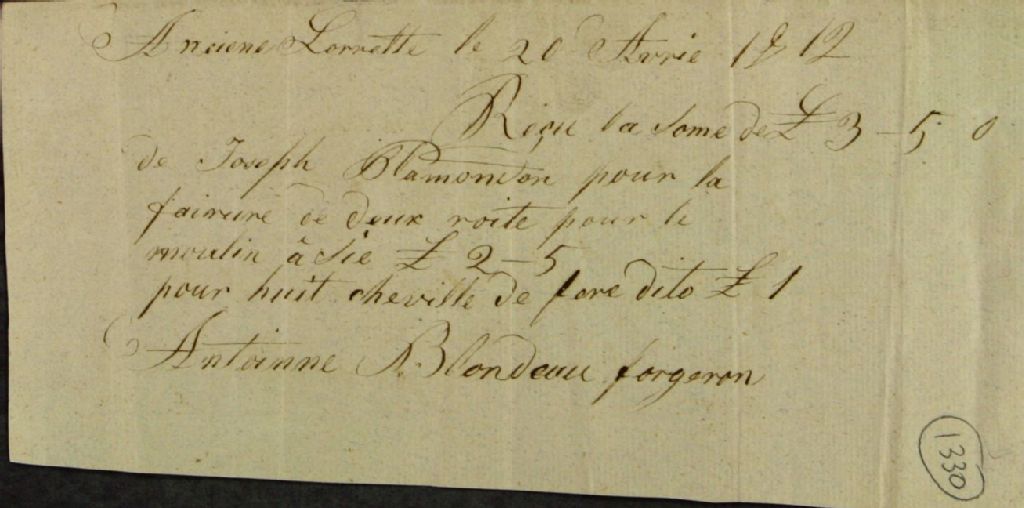 Anciene Lorrette le 20 Avrie 1812
Reçu la some de £ 3 - 5 0
de Joseph Plamondon pour la
fairure de deux roite pour le
moulin à sie £ 2 - 5
pour huit cheville de fore dito £ 1
Antoinne Blondeau forgeron
1330